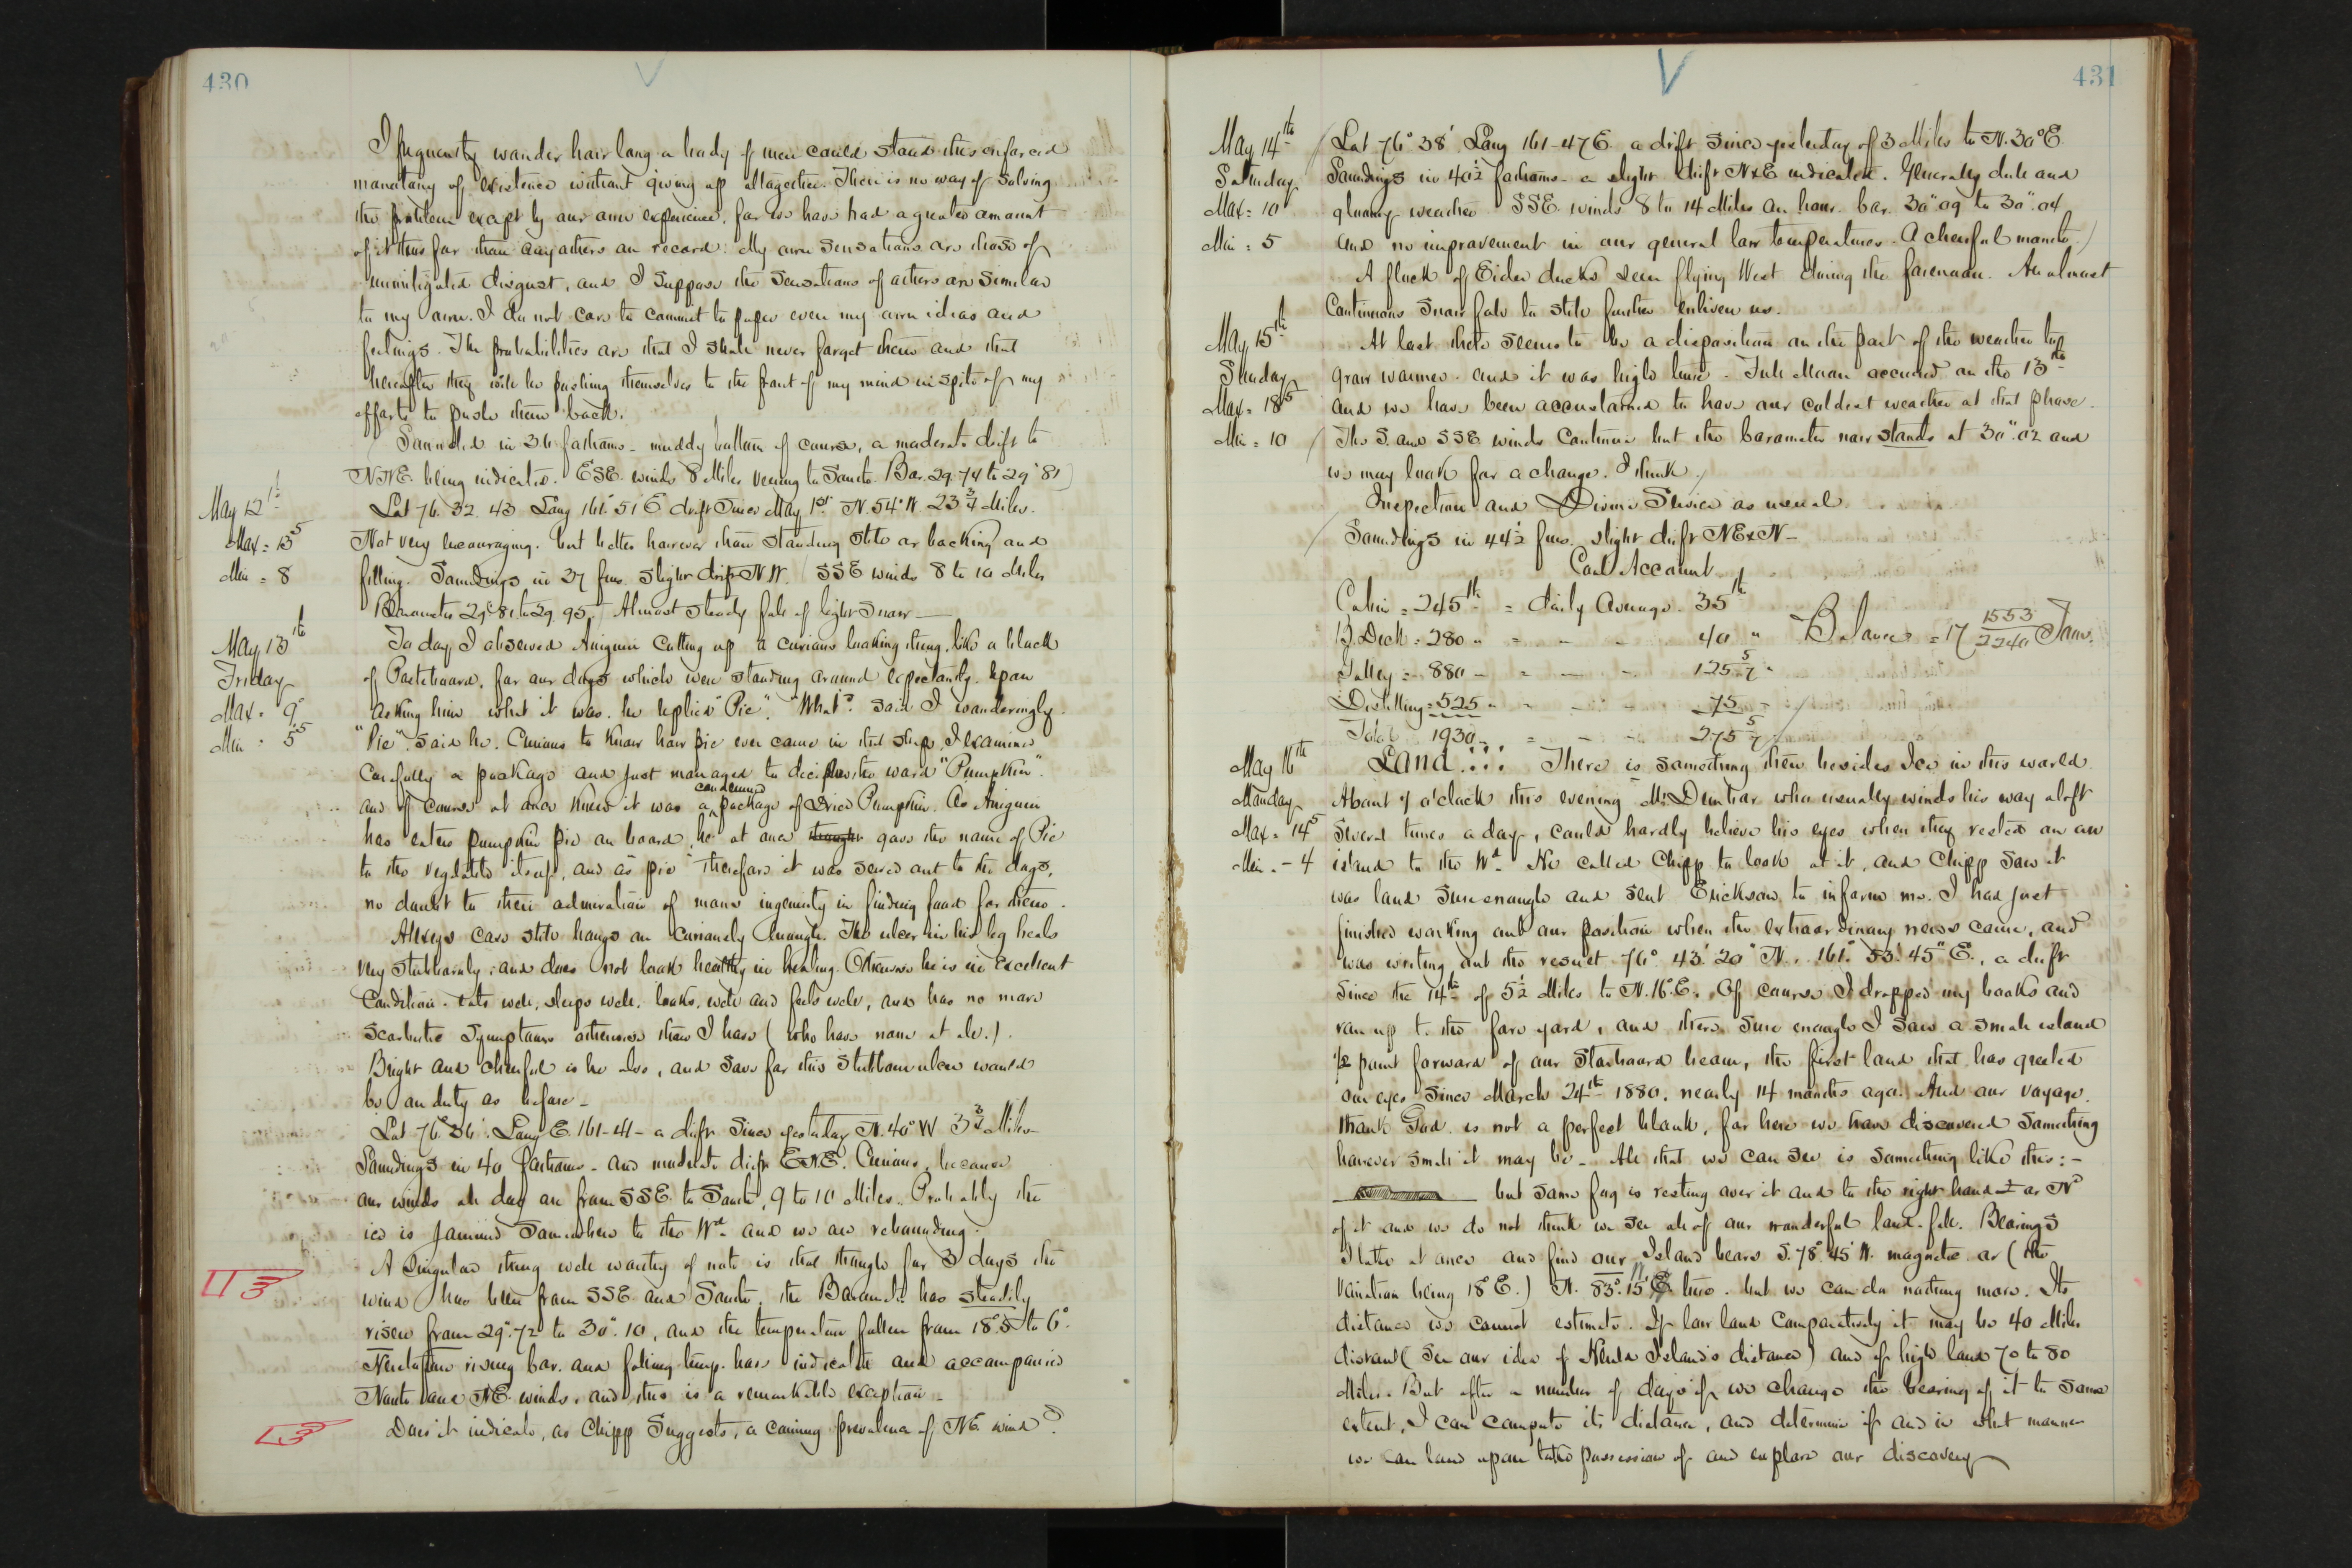 430
I frequently wonder how long a body of men could stand this enforced
monotony of existence without giving up altogether. There is no way of solving
the problem except by our own experience, for we have had a greater amount
of it thus far than any others on record. My own sensations are those of
unmitigated disgust, and I suppose the sensations of others are similar
to my own. I do not care to commit to paper even my own ideas and
feelings. The probabilities are that I shall never forget them and that
hereafter they will be pushing themselves to the front of my mind in spite of my
efforts to push them back.
Sounded in 36 fathoms - muddy bottom of course, a moderate drift to
NNE. being indicated. ESE. winds 8 Miles veering to South. Bar. 29.74 to 29"81
May 12th
Lat 76. 32. 43 Long 161° 51' E drift since May 1st N. 54° W 23 3/4 Miles.
Max = 13 5
Not very encouraging. but better however than standing still or backing and
Min = 8
filling. Soundings in 37 fms. slight drift N.W. SSE winds 8 to 10 Miles
Barometer 29.81 to 29.95. Almost steady fall of light snow
May 13th
To day I observed Aniguin cutting up a curious looking thing, like a block
Friday
of Pasteboard, for our dogs which were standing around expectantly. Upon
Max = 9°
asking him what it was. he replied "Pie". "What"? said I wonderingly.
Min = 5 5
"Pie". said he. Curious to know how pie ever came in that shape, I examined
carefully a package and just managed to decipher the word "Pumpkin".
and of course at once knew it was a condemned package of Dried Pumpkin. As Aniguin
has eaten pumpkin pie on board, he at once thought gave the name of Pie
to the vegetable itself, and as "pie" therefore it was served out to the dogs,
no doubt to their admiration of mans ingenuity in finding food for them.
Alexeys case still hangs on curiously enough. The ulcer in his leg heals
very stubbornly, and does not look healthy in healing. Otherwise he is in excellent
condition. eats well, sleeps well, looks well and feels well, and has no more
scorbutic symptoms otherwise than I have (who have none at all.).
Bright and cheerful is he also, and save for this stubborn ulcer would
be on duty as before -
Lat 76° 36'. Long E. 161-41 - a drift since yesterday N. 40° W 3 3/4 Miles
Soundings in 40 fathoms - and moderate drift ENE. Curious, because
our winds all day are from SSE to South, 9 to 10 Miles. Probably the
ice is jammed somewhere to the Wd. and we are rebounding.
A singular thing well worthy of note is that though for 3 days the
wind has been from SSE and South, the Barometer has steadily
risen from 29".72 to 30".10, and the temperature fallen from 18°.5 to 6°.
Heretofore rising bar. and falling temp. have indicated and accompanied
North and NE. winds, and this is a remarkable exception -
Does it indicate, as Chipp suggests, a coming prevalence of NE. wind?
431
May 14th
Lat 76° 38' Long 161-47 E. a drift since yesterday of 3 Miles to N. 30° E
Saturday
Soundings in 40 1/2 fathoms - a slight drift NxE indicated. Generally dull and
Max = 10
gloomy weather SSE. winds 8 to 14 Miles an hour. bar. 30".09 to 30".04
Min = 5
and no improvement in our general low temperatures. A cheerful month.
A flock of Eider ducks seen flying West during the forenoon. An almost
continuous snow fall to still further enliven us.
May 15th
At last there seems to be a disposition on the part of the weather to
Sunday
grow warmer. and it was high time. Full Moon occurred on the 13th
Max = 18 5
and we have been accustomed to have our coldest weather at that phase.
Min = 10
The S. and SSE winds continue but the barometer now stands at 30".02 and
we may look for a change. I think.
Inspection and Divine Service as usual
Soundings in 44 1/2 fms. slight drift NExN -
Coal Account
Cabin = 245 lb = daily Average - 35 lb
B. Deck = 280 " = - - 40 " Balance = 17 1553/2240 Tons.
Galley = 880 - = - - 125 5/7 "
Distilling = 525 " = - - 75 -
Total 1930 - = - - 275 5/7
May 16th
Land!!! There is something then besides Ice in this world
Monday
About 7 o'clock this evening Mr. Dunbar who usually winds his way aloft
Max = 14 5
several times a day, could hardly believe his eyes when they rested on an
Min = - 4
island to the Wd. He called Chipp to look at it, and Chipp saw it
was land sure enough and sent Ericksen to inform me. I had just
finished working out our position when the extraordinary news came, and
was writing out the result 76°. 43'. 20" N.. 161°. 53'. 45" E., a drift
since the 14th of 5 1/2 Miles to N. 16° E. Of course I dropped my books and
ran up to the fore yard, and there sure enough I saw a small island
1/2 point forward of our starboard beam, the first land that has greeted
our eyes since March 24th 1880. nearly 14 months ago. And our voyage,
thank God. is not a perfect blank, for here we have discovered something
however small it may be - All that we can see is something like this: -
but some fog is resting over it and to the right hand or Nd
of it and we do not think we see all of our wonderful land-fall. Bearings
I take at once and find our Island bears S. 78° 45' W. magnetic or (the
variation being 18° E.) N. 83°. 15' W. true. but we can do nothing more. Its
distance we cannot estimate. If low land comparatively it may be 40 Miles
distant (See our idea of Herald Island's distance) and if high land 70 to 80
Miles. But after a number of days if we change the bearing of it to some
extent, I can compute its distance, and determine if and in what manner
we can land upon take possession of and explore our discovery